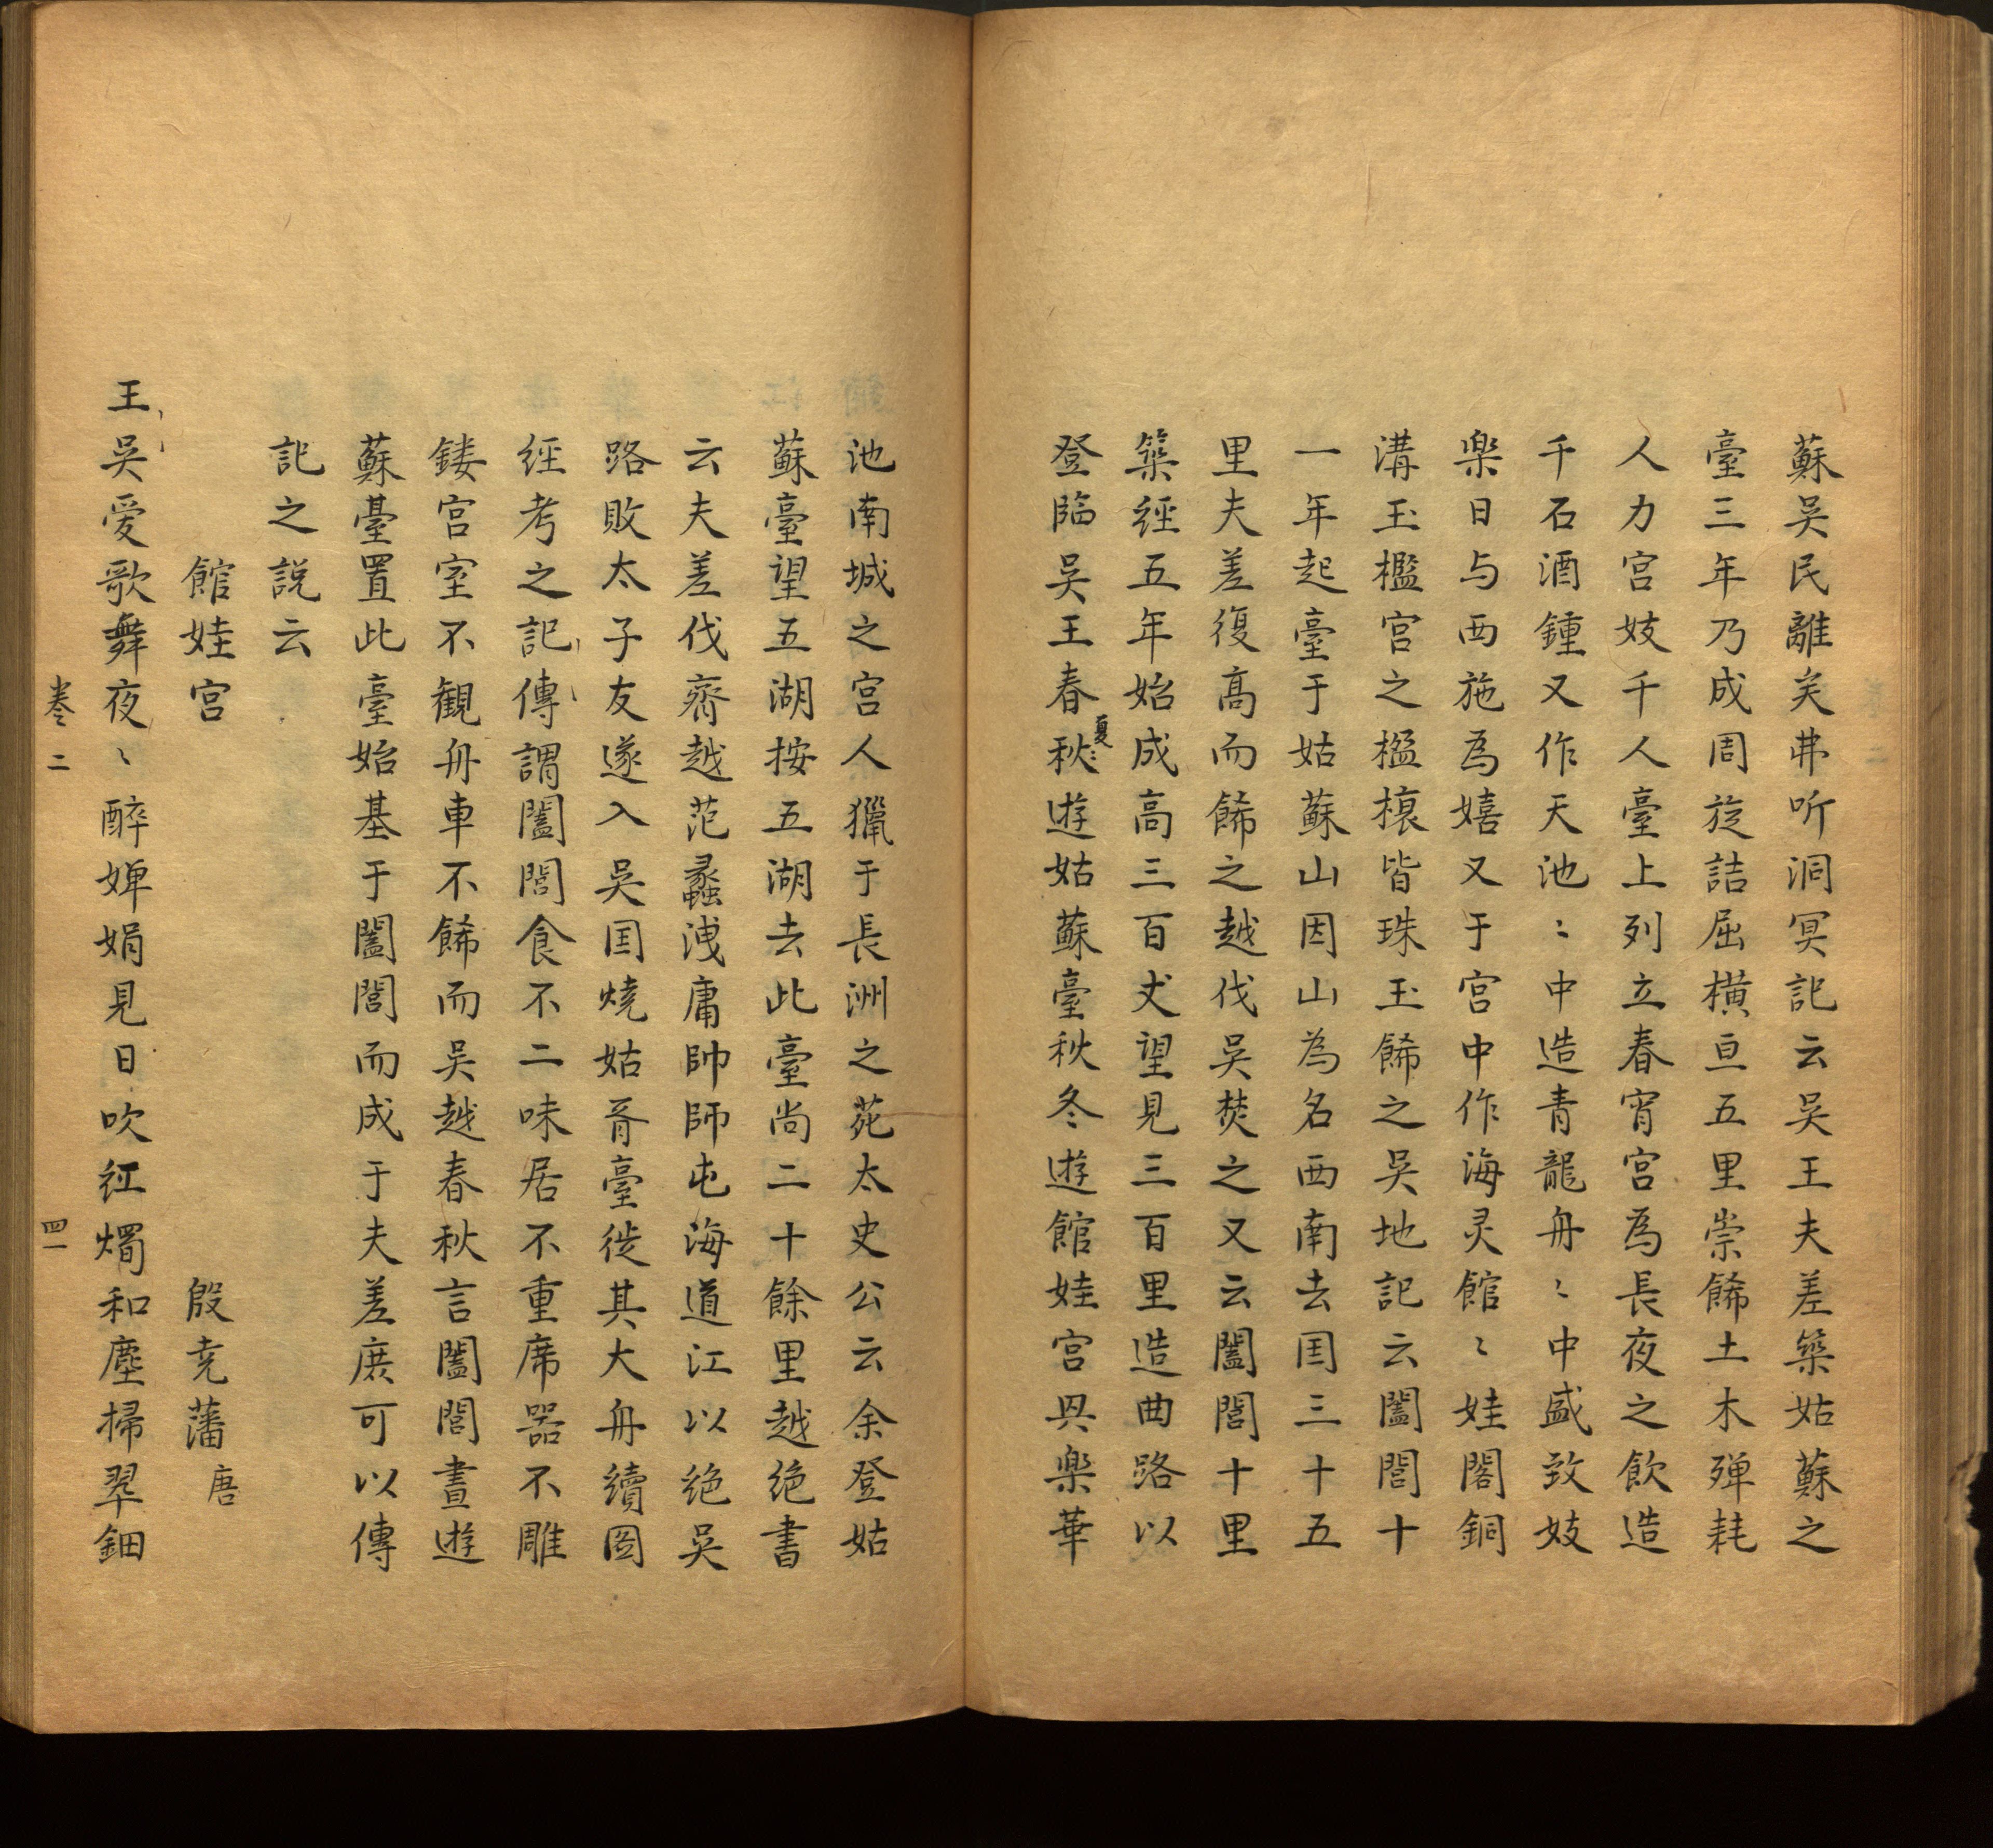 蘇吳民離矣弗听洞冥記云吳王夫差築姑蘇之
臺三年乃成周旋詰屈橫亘五里崇餙土木殫耗
人力宮妓千人臺上列立春宵宮為長夜之飲造
千石酒鍾又作天池〻中造青龍舟〻中盛致妓
楽日与西施為嬉又于宮中作海灵館〻娃閣銅
溝玉檻宮之楹榱皆珠玉餙之吳地記云闔閭十
一年起臺于姑蘇山因山為名西南去囯三十五
里夫差復高而餙之越伐吳焚之又云闔閭十里
築経五年始成高三百丈望見三百里造曲路以
登臨吳王春秋遊姑蘇臺秋冬遊館娃宮興楽華
夏
池南城之宮人獵于長洲之苑太史公云余登姑
蘇臺望五湖按五湖去此臺尚二十餘里越絶書
云夫差伐齊越范蠡洩庸帥師屯海道江以絶吳
路敗太子友遂入吳囯燒姑胥臺徙其大舟續圖
経考之記傳謂闔閭食不二味居不重席器不雕
鏤宮室不観舟車不餙而吳越春秋言闔閭晝遊
蘇臺置此臺始基于闔閭而成于夫差庶可以傳
記之說云
館娃宮 殷尭藩 唐
王吳爱歌舞夜〻醉婵娟見日吹红燭和塵掃翠鈿
卷二 四一